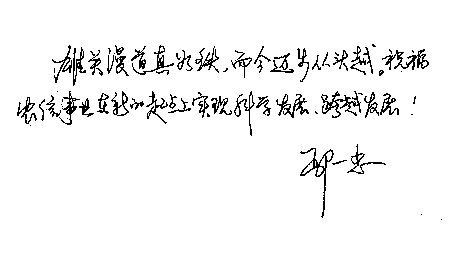 雄关漫道真如铁，而今迈步从头越。祝福
农信事业在新的起点上实现科学发展、跨越发展！